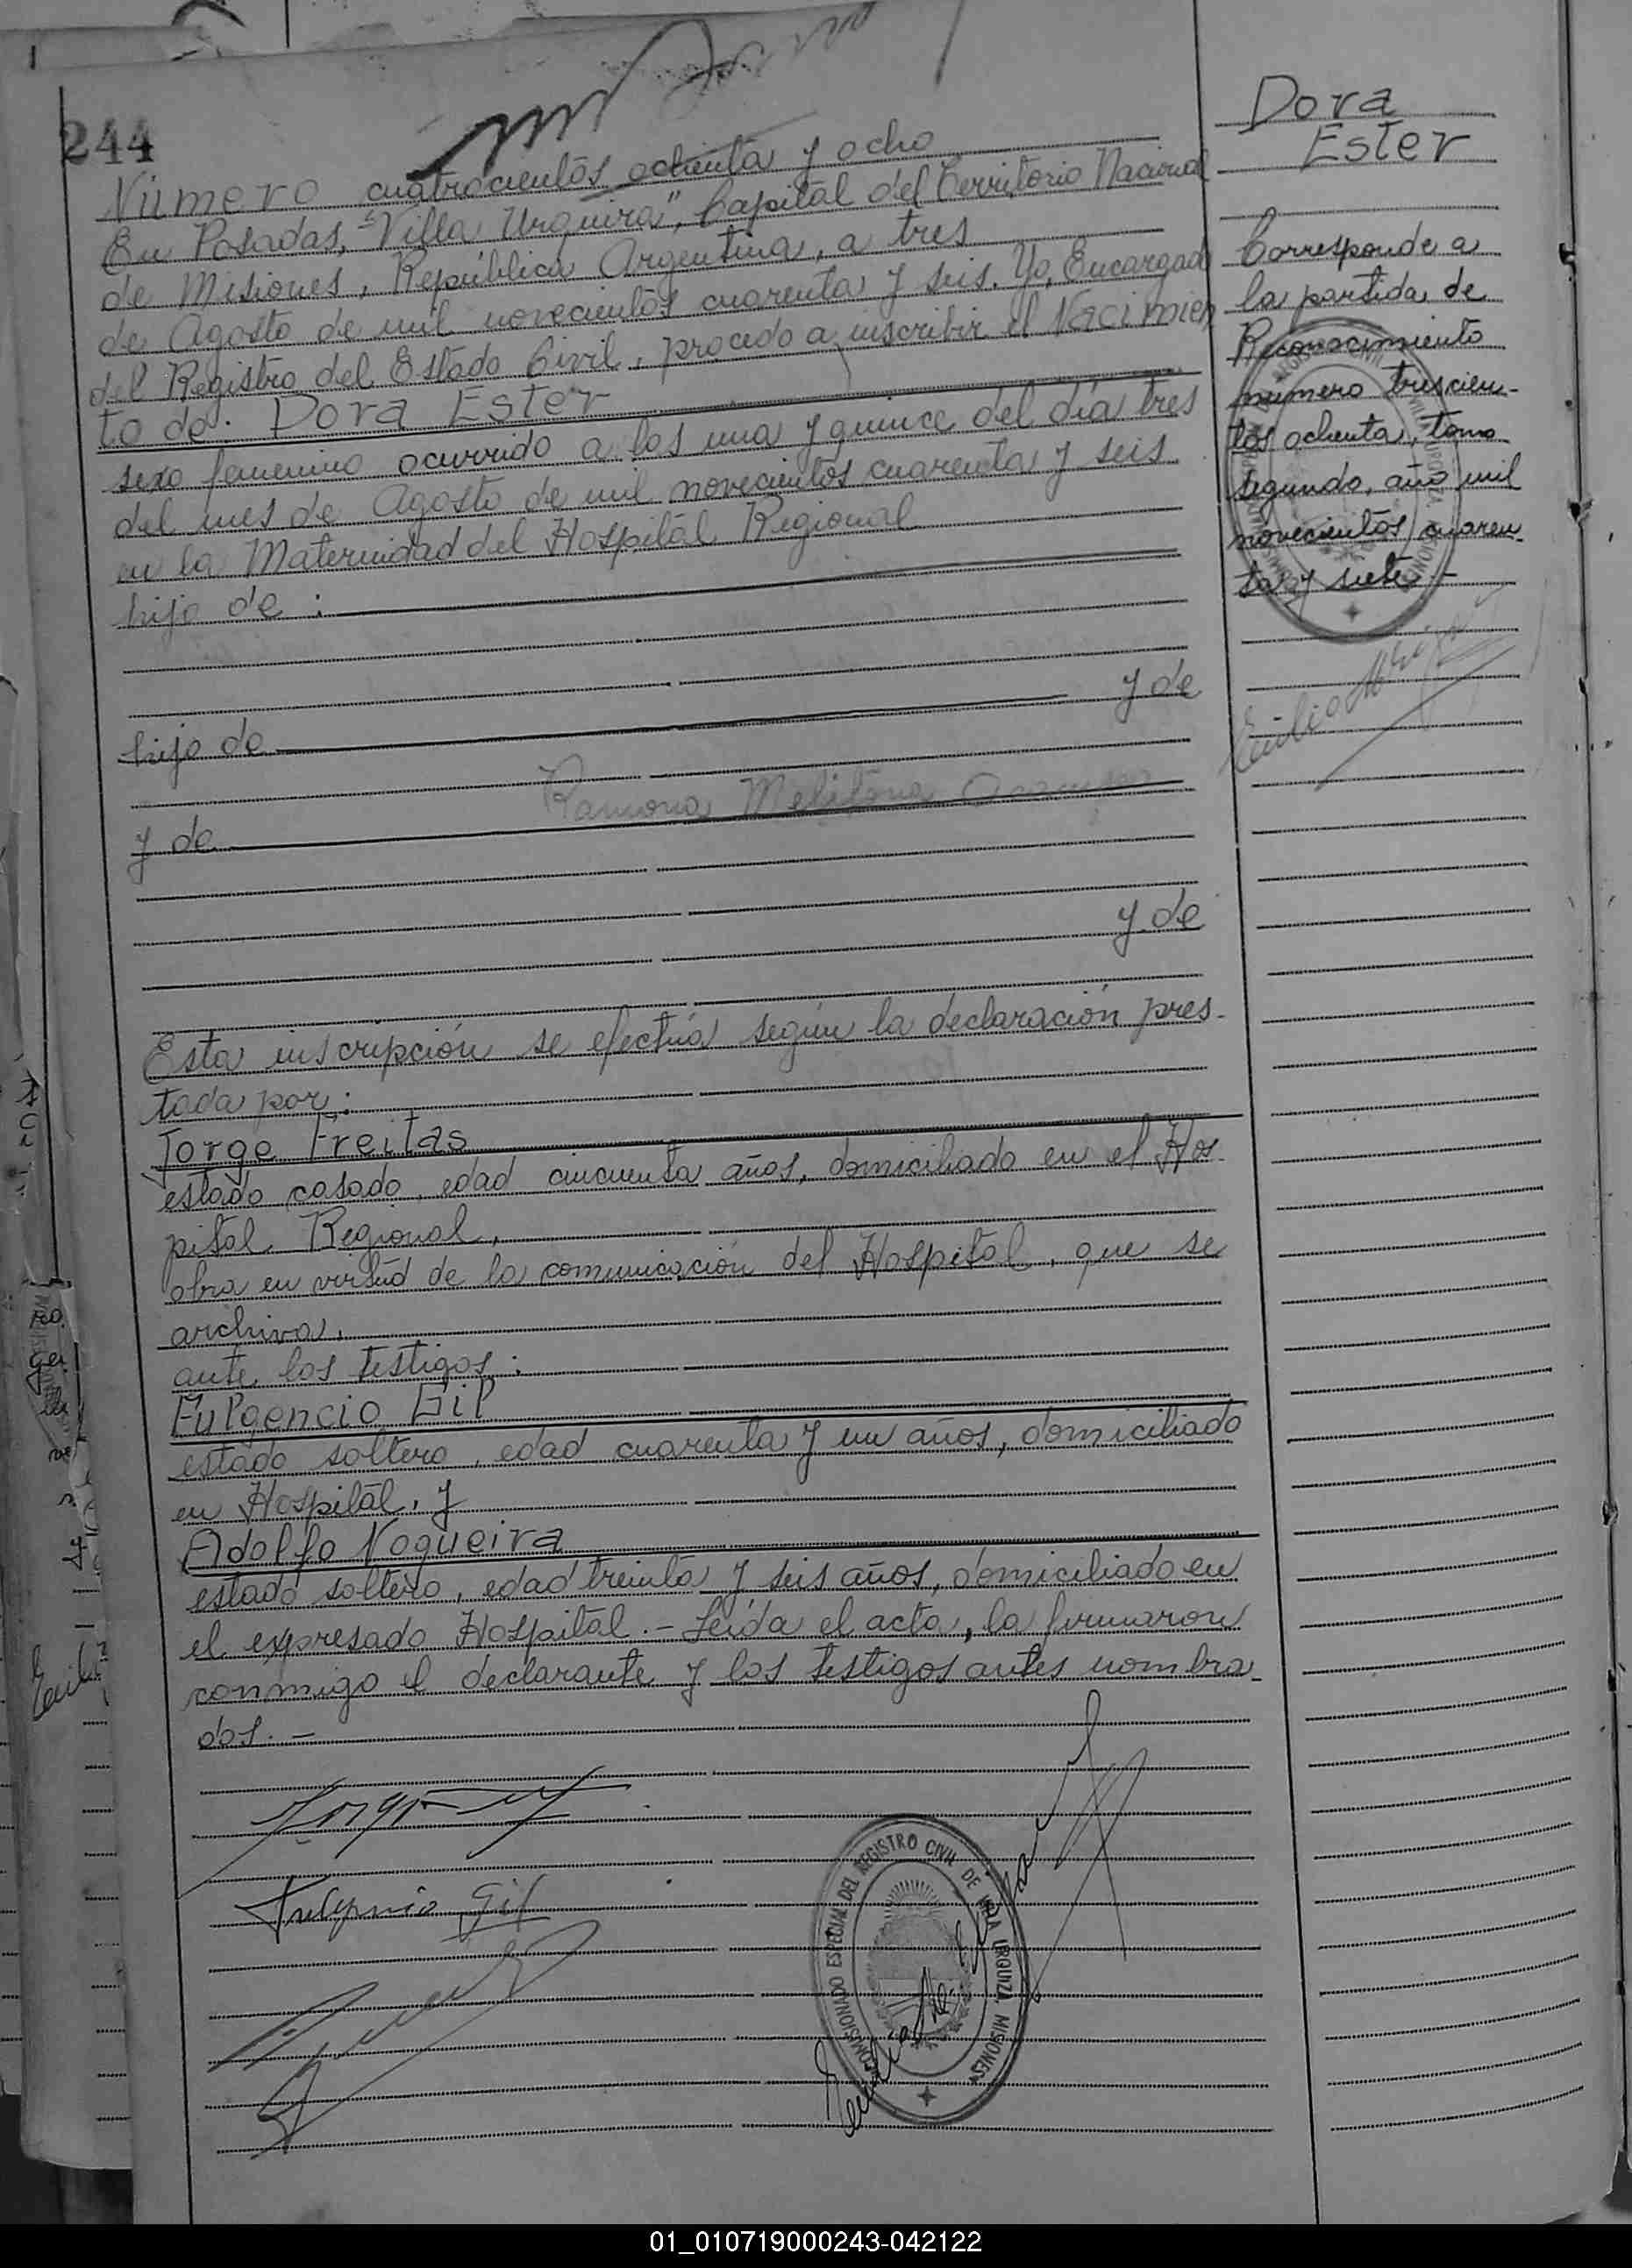 244
Dora
Ester
Número cuatrocientos ochenta y ocho
En Posadas, "Villa Urquiza", Capital del Territorio Nacional
de Misiones, República Argentina, a tres
de Agosto de mil novecientos cuarenta y seis. Yo, Encargado
del Registro del Estado Civil, procedo a inscribir el Nacimien
to de: Dora Ester
sexo femenino ocurrido a las una y quince del día tres
del mes de Agosto de mil novecientos cuarenta y seis
en la Maternidad del Hospital Regional
hijo de :
hijo de y de
Ramona Melitona
y de
y de
Esta inscripción se efectúa según la declaración pres-
tada por:
Jorge Freitas
estado casado, edad cincuenta años, domiciliado en el Hos-
pital Regional,
obra en virtud de la comunicación del Hospital, que se
archiva,
ante los testigos:
Fulgencio Gil
estado soltero, edad cuarenta y un años, domiciliado
en Hospital, y
Adolfo Nogueira
estado soltero, edad treinta y seis años, domiciliado en
el expresado Hospital.- Leída el acta, la firmaron
conmigo el declarante y los testigos antes nombra-
dos.-
Corresponde a
la partida de
Reconocimiento
número trescien-
tos ochenta, tomo
segundo, año mil
novecientos cuaren-
ta y siete.-
Fulgencio Gil
COMISIONADO ESPECIAL DEL REGISTRO CIVIL DE VILLA URQUIZA MISIONES
01_010719000243-042122